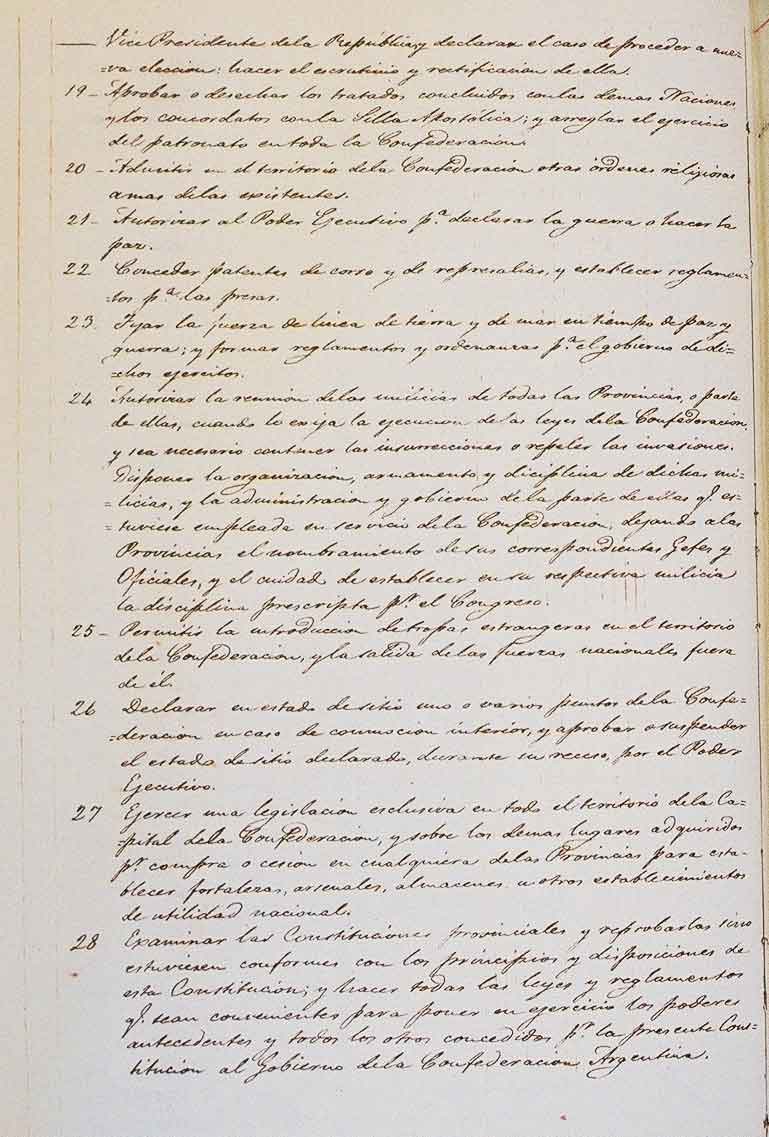 Vice Presidente de la República; y declarar el caso de proceder a nue-
=va eleccion: hacer el escrutinio y rectificacion de ella.
19 - Aprobar o desechar los tratados concluidos con las demas Naciones
y los concordatos con la Silla Apostólica; y arreglar el ejercicio
del patronato en toda la Confederacion.
20 - Admitir en el territorio de la Confederacion otras órdenes religiosas
a mas de las existentes.
21 - Autorizar al Poder Ejecutivo pª declarar la guerra o hacer la
paz.
22 Conceder patentes de corso y de represalias, y establecer reglamen-
=tos pª las presas.
23. Fijar la fuerza de linea de tierra y de mar en tiempo de paz y
guerra; y formar reglamentos y ordenanzas pª el gobierno de di-
=chos ejercitos.
24 Autorizar la reunion de las milicias de todas las Provincias, o parte
de ellas, cuando lo exija la ejecucion de las leyes de la Confederacion,
y sea necesario contener las insurrecciones o repeler las invasiones.
Disponer la organizacion, armamento y disciplina de dichas mi-
=licias, y la administracion y gobierno de la parte de ellas q.e es-
=tuviese empleada en servicio de la Confederacion, dejando a las
Provincias el nombramiento de sus correspondientes Gefes y
Oficiales, y el cuidado de establecer en su respectiva milicia
la disciplina prescripta p.r el Congreso.
25 - Permitir la introduccion de tropas estrangeras en el territorio
de la Confederacion, y la salida de las fuerzas nacionales fuera
de él.
26 Declarar en estado de sitio uno o varios puntos de la Confe-
=deracion en caso de conmocion interior, y aprobar o suspender
el estado de sitio declarado, durante su receso, por el Poder
Ejecutivo.
27 Ejercer una legislacion esclusiva en todo el territorio de la Ca-
=pital de la Confederacion, y sobre los demas lugares adquiridos
p.r compra o cesion en cualquiera de las Provincias para esta-
blecer fortalezas, arsenales, almacenes u otros establecimientos
de utilidad nacional.
28 Examinar las Constituciones provinciales y reprobarlas sino
estuviesen conformes con los principios y disposiciones de
esta Constitucion; y hacer todas las leyes y reglamentos
q.e sean convenientes para poner en ejercicio los poderes
antecedentes y todos los otros concedidos p.r la presente Cons-
titucion al Gobierno de la Confederacion Argentina.